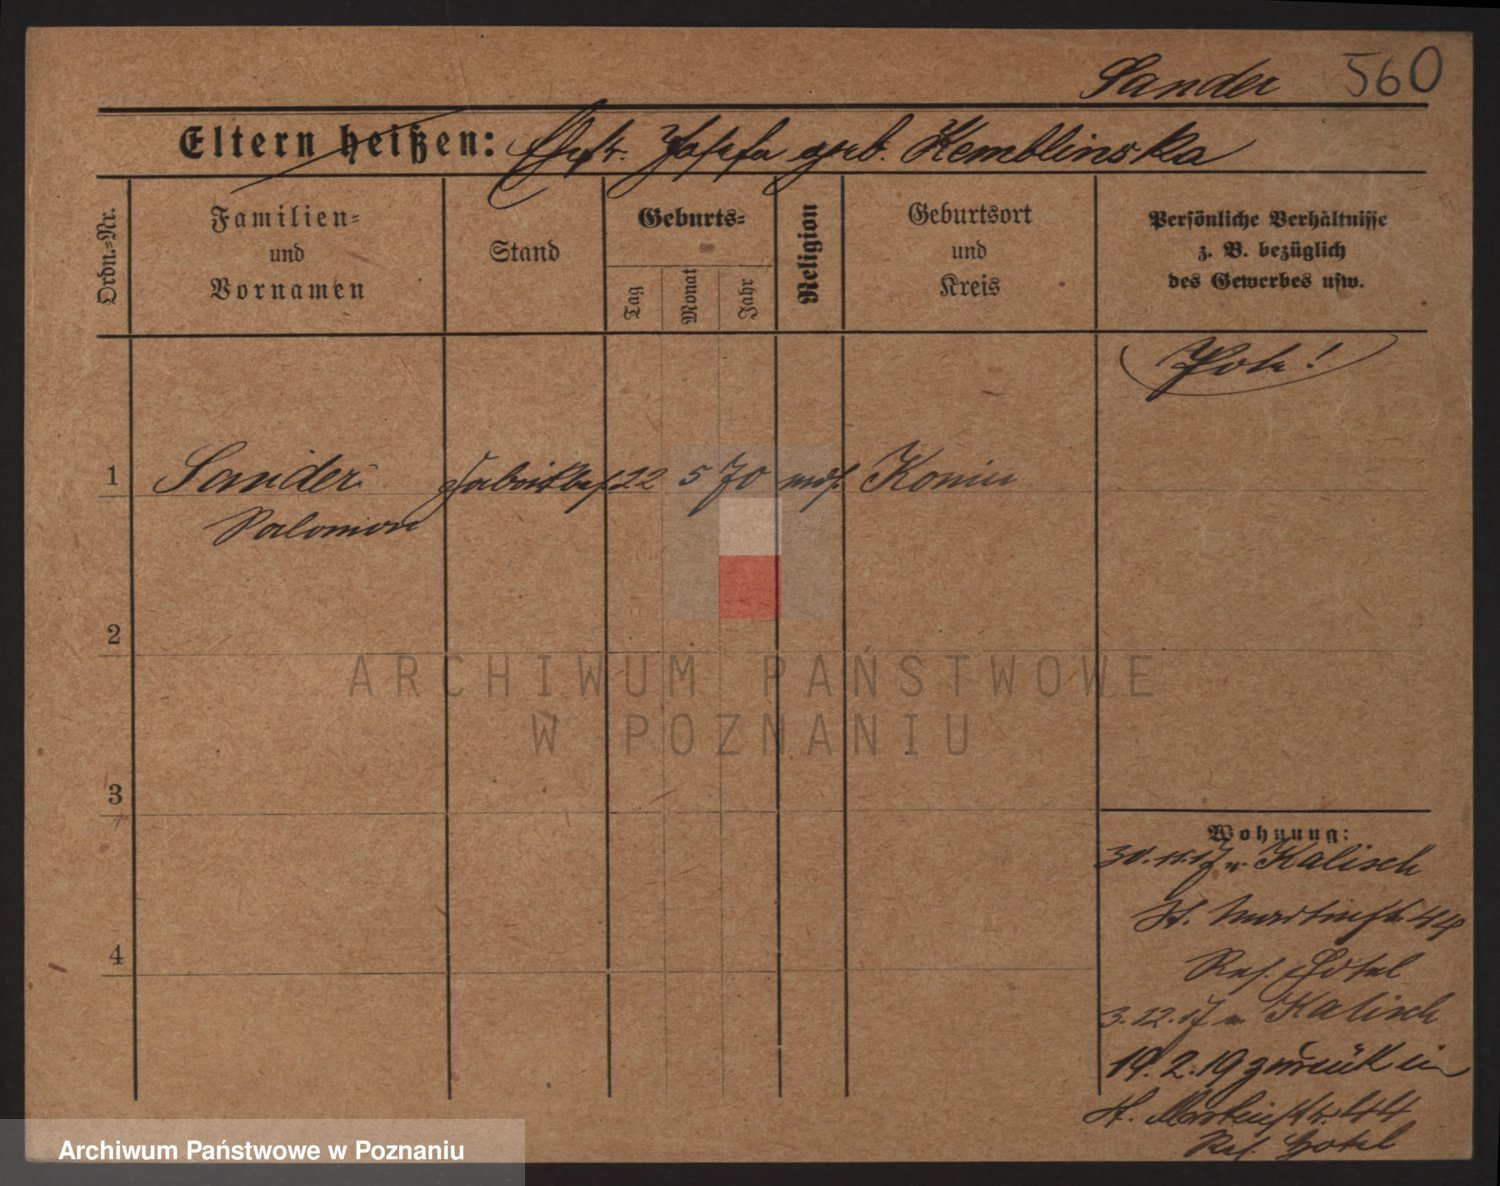 Sander 560
Eltern heißen: Ehefr. Josefa geb. Kemblinska
Ordn.-Nr.
Familien-
und
Vornamen
Stand
Geburts-
Tag
Monat
Jahr
Religion
Geburtsort
und
Kreis
Persönliche Verhältnisse
z. B. bezüglich
des Gewerbes usw.
Pole!
1 Sander Fabrikbes. 22 5 70 mos. Konin
Salomon
2
3
4
Wohnung:
30.11.17 v. Kalisch
St. Martinstr. 44
Res. Hotel
3.12.17 n. Kalisch
19.2.19 zurück in
St. Martinstr. 44
Res. Hotel
ARCHIWUM PAŃSTWOWE
W POZNANIU
Archiwum Państwowe w Poznaniu